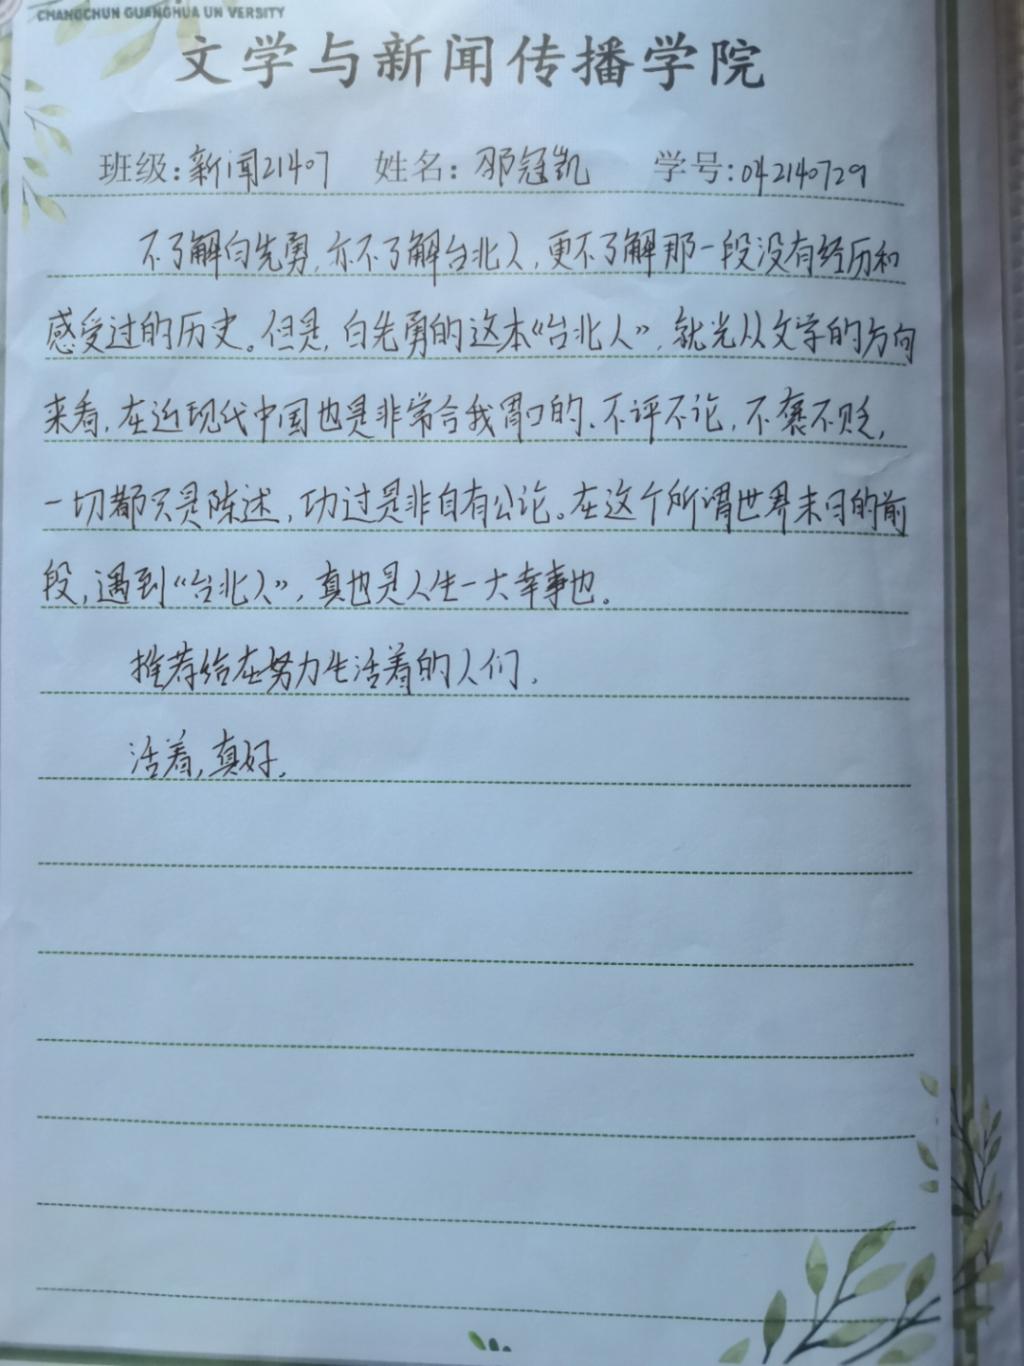 CHANGCHUN GUANGHUA UN VERSITY
文学与新闻传播学院
班级:新闻21407 姓名:邵冠凯 学号:042140729
不了解白先勇,亦不了解台北人,更不了解那一段没有经历和
感受过的历史。但是,白先勇的这本《台北人》,就光从文学的方向
来看,在近现代中国也是非常合我胃口的、不评不论,不褒不贬,
一切都只是陈述,功过是非自有公论。在这个所谓世界末日的前
段,遇到《台北人》,真也是人生一大幸事也。
推荐给在努力生活着的人们.
活着,真好.